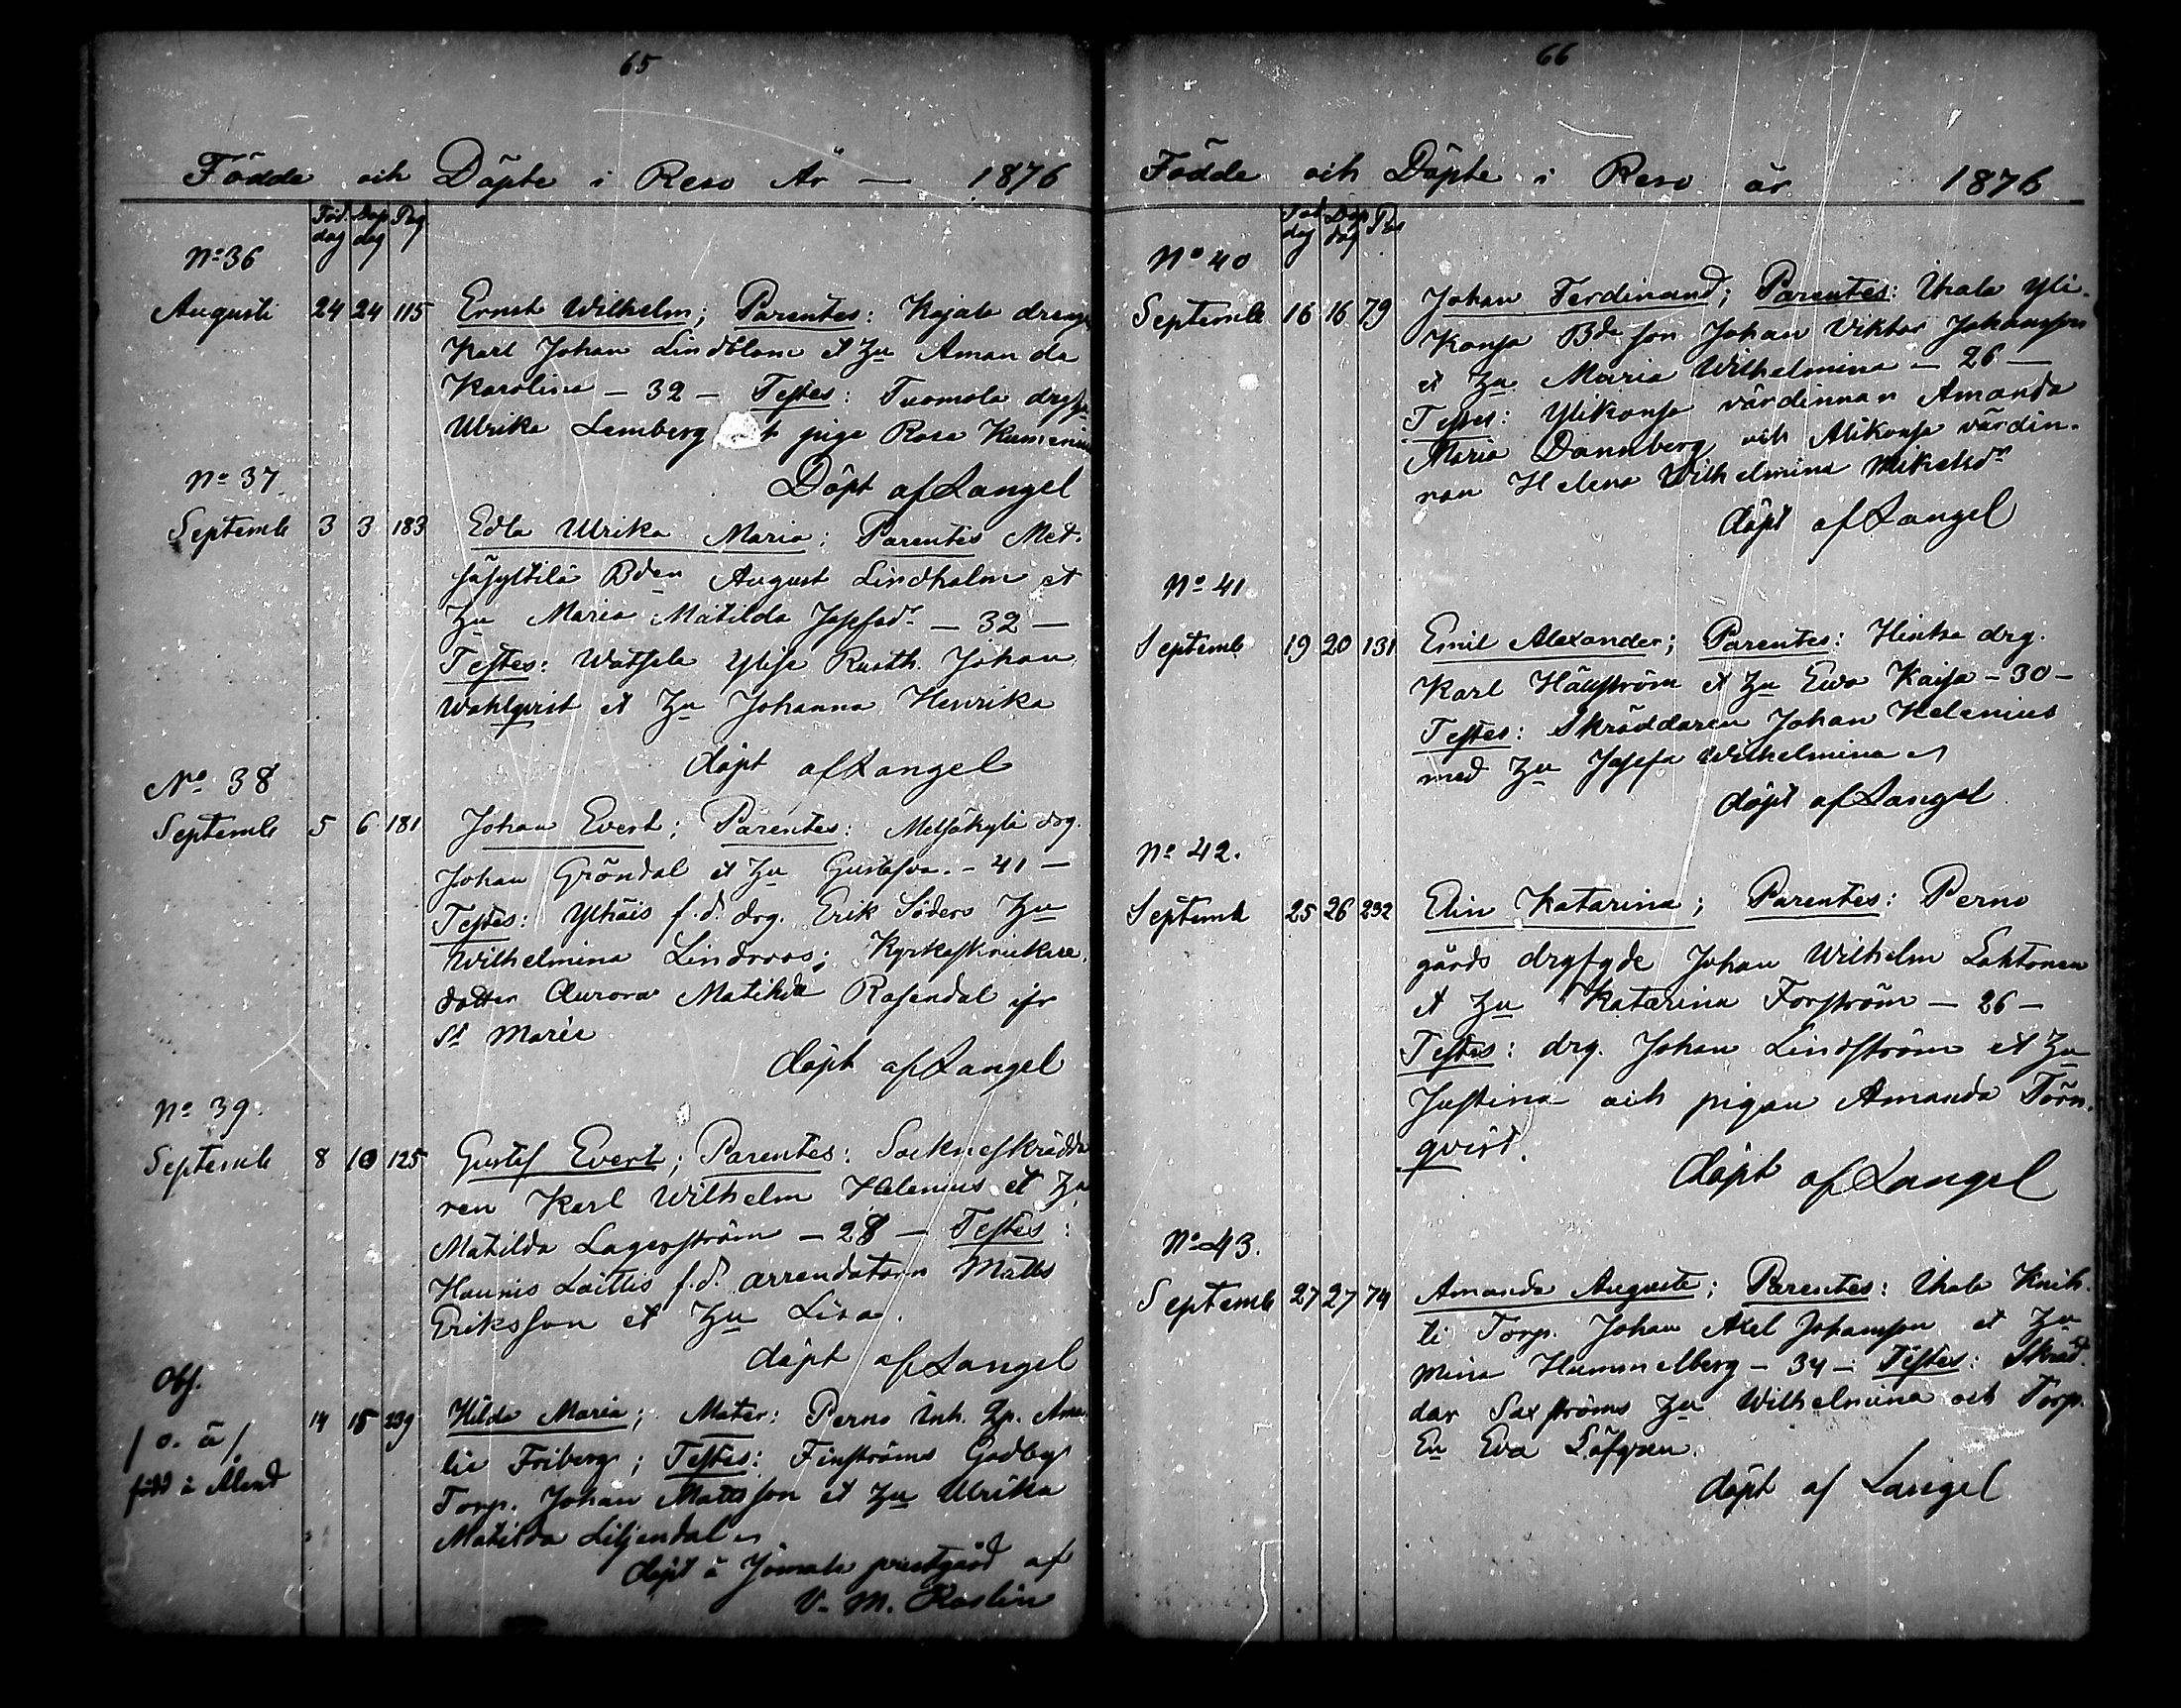 65
Födde och Döpte i Reso År — 1876
Föd. dag Döp dag Pag
No 36
Augusti 24 24 115 Ernst Wilhelm; Parentes: Kajala dreng
Karl Johan Lindblom et Hu Amanda
Karolina — 32 — Testes: Tuomola
Ulrika Lemberg et piga Rosa
Döpt af Langel
No 37
Septemb 3 3 183 Edla Ulrika Maria: Parentes Met-
säkyltilä Bden August Lindholm et
Hu Maria Matilda Josefsdr — 32 —
Testes: Watsela Ylisi Rusth. Johan
Wahlqvist et Hu Johanna Henrika
döpt af Langel
No 38
Septemb 5 6 181 Johan Evert; Parentes: Metsäkylä drg.
Johan Gröndal et Hu Gustafva. — 41 —
Testes: Ylhäis f.d. drg. Erik Söders Hu
Wilhelmina Lindroos; Kyrkoskrinikare
dotter Aurora Matilda Rosendal ifr
St Marie
döpt af Langel
No 39.
Septemb 8 10 125 Gustaf Evert; Parentes: Sockneskrädda
ren Karl Wilhelm Helenius et Hu
Matilda Lagerström — 28 — Testes:
Haunis Laittis f.d. arrendatorn Matts
Eriksson et Hu Lisa.
döpt af Langel
Obs.
/ o. ä /
född å Åland
14 15 239 Hilda Maria; Mater: Perno Inh. Qp. Ama-
lie Friberg; Testes: Finströms Godby
Torp. Johan Mattsson et Hu Ulrika
Matilda Liljendal
döpt å Jomala prestgård af
V. M. Roslin
66
Födde och Döpte i Reso år 1876
Föd dag Döp dag Pag
No 40
Septemb 16 16 79 Johan Ferdinand; Parentes: Ihala Yli-
konsa Bde son Johan Viktor Johansson
et Hu Maria Wilhelmina — 26 —
Testes: Ylikonsa värdinnan Amanda
Maria Dannberg och Alikonsa värdin-
nan Helena Wilhelmina Mikelsdr
döpt af Langel
No 41
Septemb 19 20 131 Emil Alexander; Parentes: Hintsa drg.
Karl Hällström et Hu Eva Kaisa — 30 —
Testes: Skräddaren Johan Helenius
med Hu Josefa Wilhelmina
döpt af Langel
No 42.
Septemb 25 26 232 Elin Katarina; Parentes: Perno
gårds drgfgde Johan Wilhelm Lahtonen
et Hu Katarina Forström — 26 —
Testes: drg. Johan Lindström et Hu
Justina och pigan Amanda Törn-
qvist.
döpt af Langel
No 43.
Septemb 27 27 74 Amanda Augusta; Parentes: Ihala Knih-
ti Torp. Johan Axel Johansson et Hu
Mina Hummelberg — 34 —: Testes: Skräd-
dar Saxströms Hu Wilhelmina och Torp.
En Eva Löfgren.
döpt af Langel